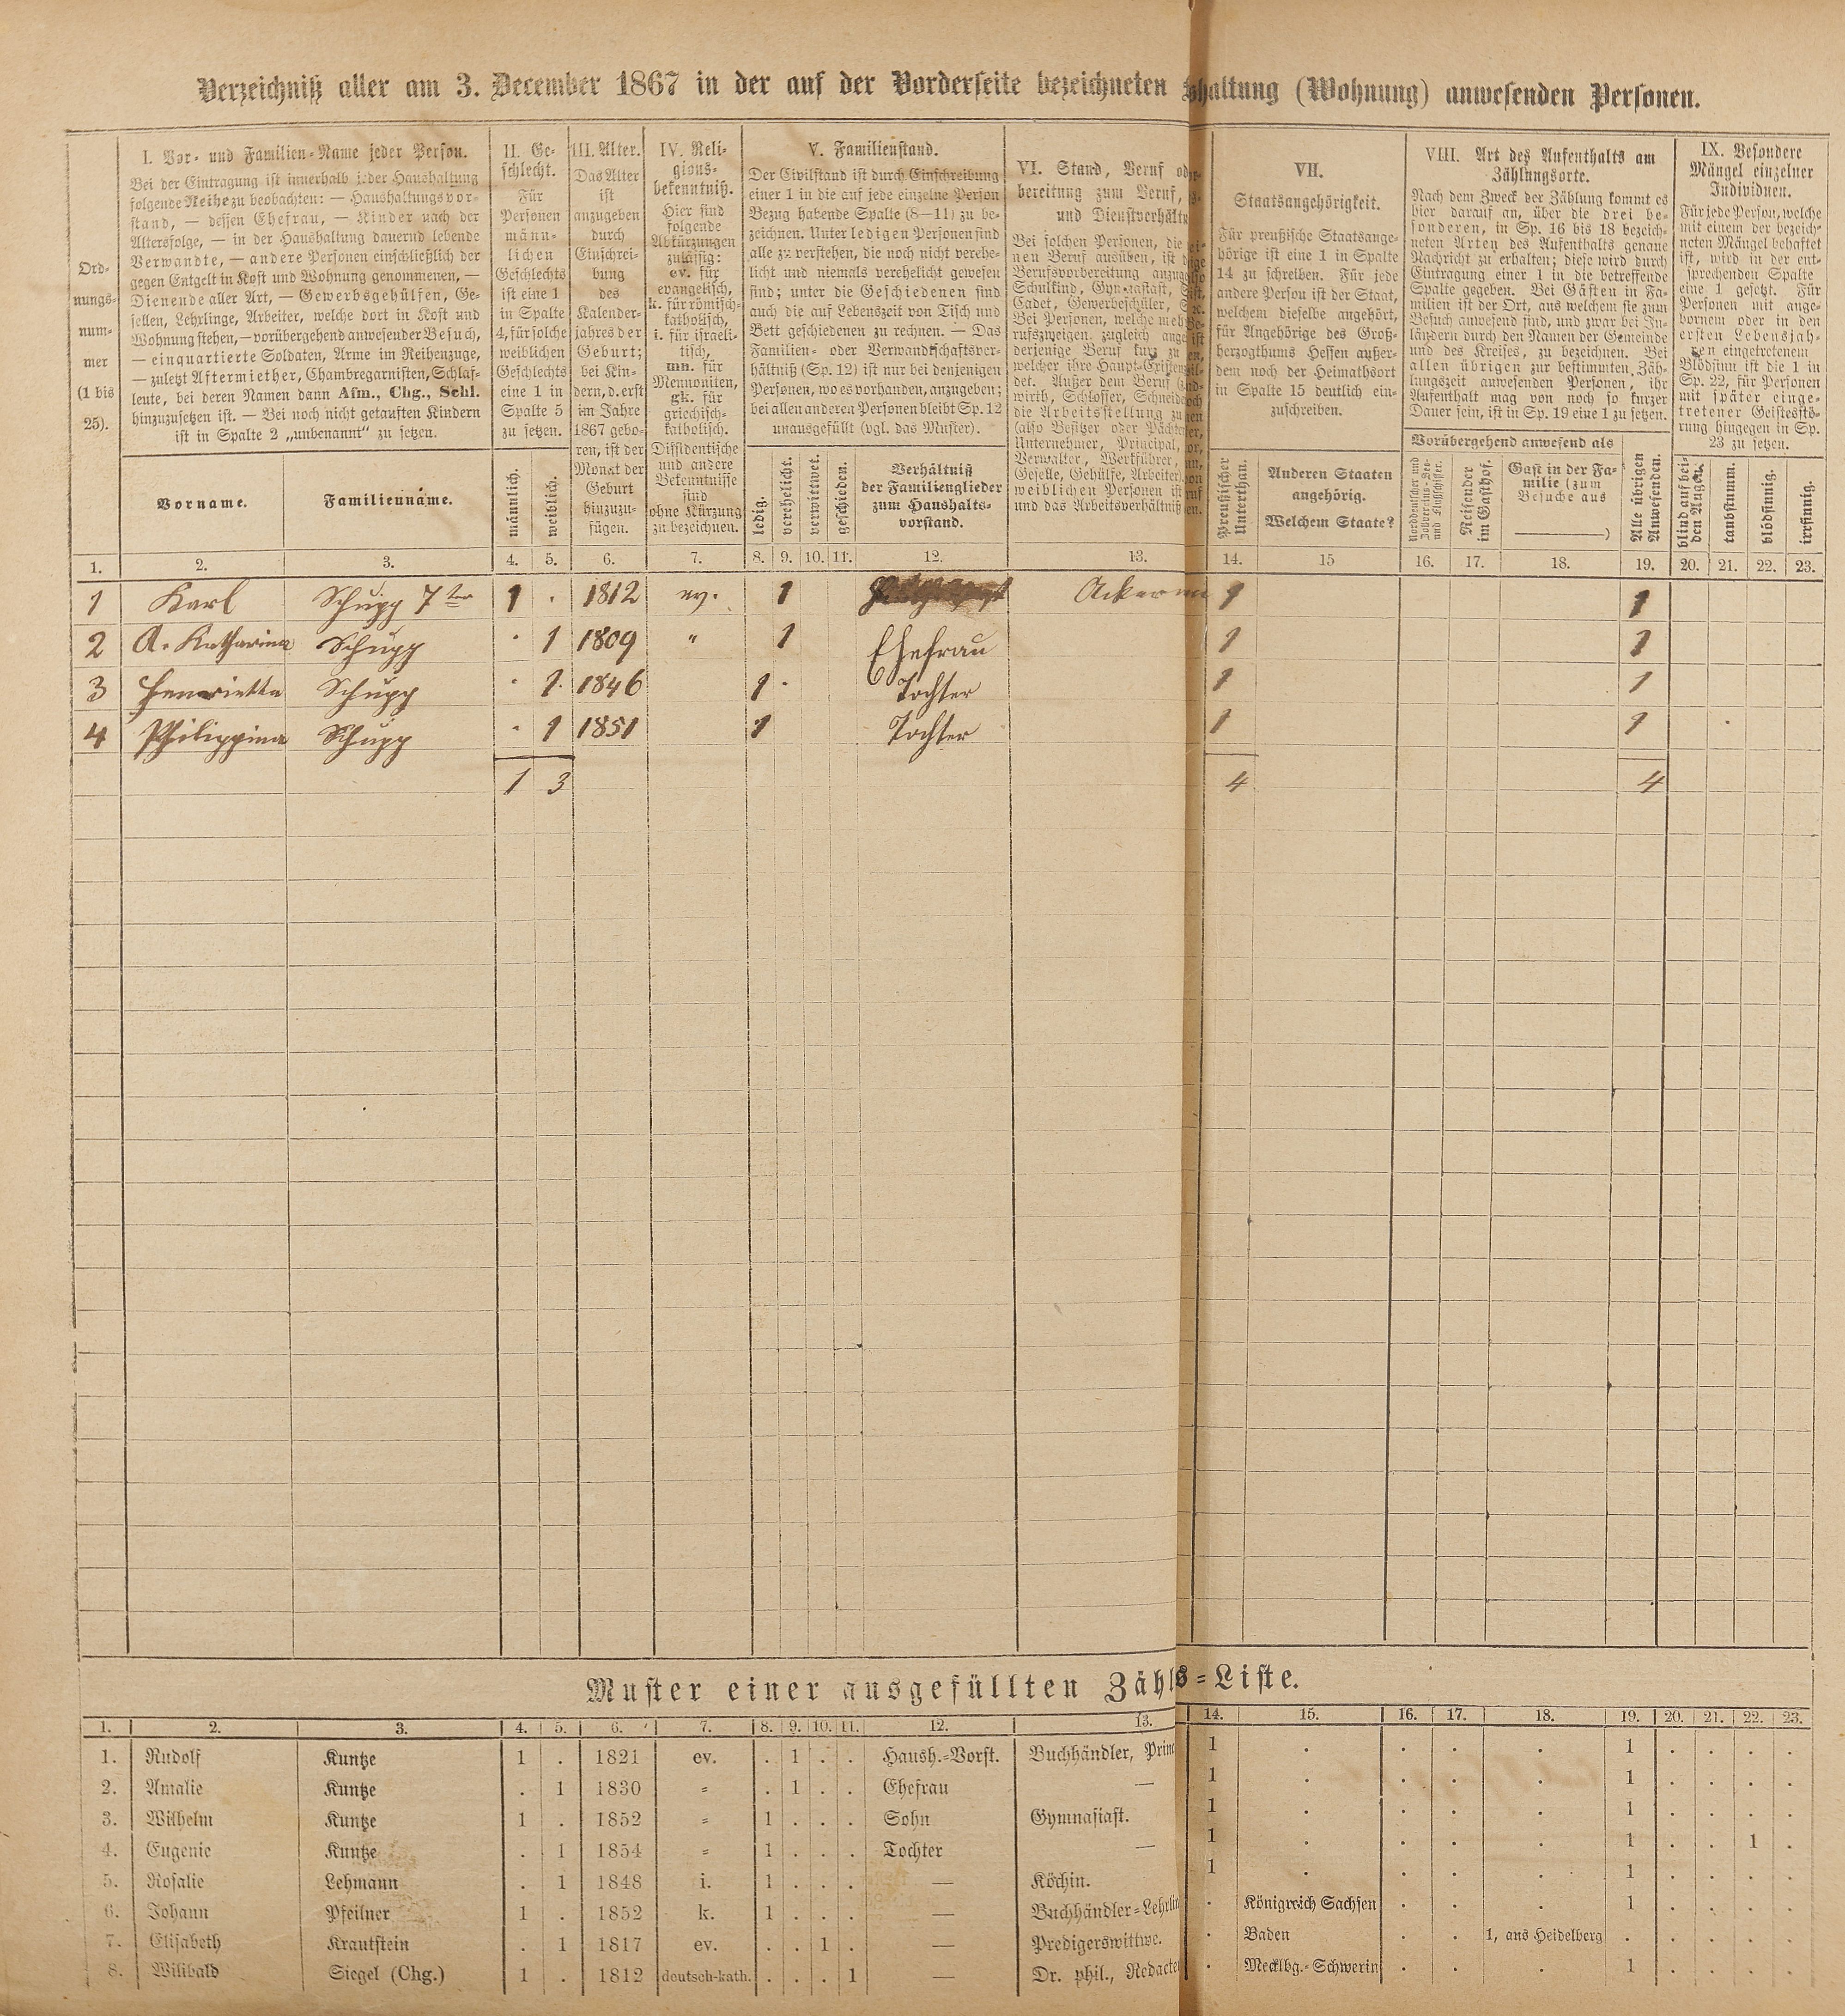 Verzeichniß aller am 3. December 1867 in der auf der Vorderseite bezeichneten haltung (Wohnung) anwesenden Personen.
Ord-
nungs-
num-
mer
(1 bis
25).
I. Vor- und Familien-Name jeder Person.
Bei der Eintragung ist innerhalb jeder Haushaltung
folgende Reihe zu beobachten: — Haushaltungsvor-
stand, — dessen Ehefrau, — Kinder nach der
Altersfolge, — in der Haushaltung dauernd lebende
Verwandte, — andere Personen einschließlich der
gegen Entgelt in Kost und Wohnung genommenen, —
Dienende aller Art, — Gewerbsgehülfen, Ge-
sellen, Lehrlinge, Arbeiter, welche dort in Kost und
Wohnung stehen, — vorübergehend anwesender Besuch,
— einquartierte Soldaten, Arme im Reihenzuge,
— zuletzt Aftermiether, Chambregarnisten, Schlaf-
leute, bei deren Namen dann Afm., Chg., Schl.
hinzuzusetzen ist. — Bei noch nicht getauften Kindern
ist in Spalte 2 „unbenannt“ zu setzen.
Vorname.
Familienname.
II. Ge-
schlecht.
Für
Personen
männ-
lichen
Geschlechts
ist eine 1
in Spalte
4, für solche
weiblichen
Geschlechts
eine 1 in
Spalte 5
zu setzen.
männlich.
weiblich.
III. Alter.
Das Alter
ist
anzugeben
durch
Einschrei-
bung
des
Kalender-
jahres der
Geburt;
bei Kin-
dern, d. erst
im Jahre
1867 gebo-
ren, ist der
Monat der
Geburt
hinzuzu-
fügen.
IV. Reli-
gions-
bekenntniß.
Hier sind
folgende
Abkürzungen
zulässig:
ev. für
evangelisch,
k. für römisch-
katholisch,
i. für israeli-
tisch,
mn. für
Mennoniten,
gk. für
griechisch-
katholisch.
Dissidentische
und andere
Bekenntnisse
sind
ohne Kürzung
zu bezeichnen.
V. Familienstand.
Der Civilstand ist durch Einschreibung
einer 1 in die auf jede einzelne Person
Bezug habende Spalte (8—11) zu be-
zeichnen. Unter ledigen Personen sind
alle zu verstehen, die noch nicht verehe-
licht und niemals verehelicht gewesen
sind; unter die Geschiedenen sind
auch die auf Lebenszeit von Tisch und
Bett geschiedenen zu rechnen. — Das
Familien- oder Verwandtschaftsver-
hältniß (Sp. 12) ist nur bei denjenigen
Personen, wo es vorhanden, anzugeben;
bei allen anderen Personen bleibt Sp. 12
unausgefüllt (vgl. das Muster).
ledig.
verehelicht.
verwittwet.
geschieden.
Verhältniß
der Familienglieder
zum Haushalts-
vorstand.
VI. Stand, Beruf
bereitung zum Beruf,
und
Bei solchen Personen, die
nen Beruf ausüben, ist
Berufsvorbereitung
Schulkind, Gymnasiast,
Cadet, Gewerbeschüler,
Bei Personen, welche
rufszweigen zugleich
derjenige Beruf kurz zu
welcher ihre
det. Außer dem Beruf
wirth, Schlosser,
die Arbeitsstellung
(also Besitzer oder
Unternehmer, Principal,
Verwalter, Werkführer,
Geselle, Gehülfe,
weiblichen Personen ist
und das
VII.
Staatsangehörigkeit.
Für preußische Staatsange-
hörige ist eine 1 in Spalte
14 zu schreiben. Für jede
andere Person ist der Staat,
welchem dieselbe angehört,
für Angehörige des Groß-
herzogthums Hessen außer-
dem noch der Heimathsort
in Spalte 15 deutlich ein-
zuschreiben.
Preußischer
Unterthan.
Anderen Staaten
angehörig.
Welchem Staate?
VIII. Art des Aufenthalts am
Zählungsorte.
Nach dem Zweck der Zählung kommt es
hier darauf an, über die drei be-
sonderen, in Sp. 16 bis 18 bezeich-
neten Arten des Aufenthalts genaue
Nachricht zu erhalten; diese wird durch
Eintragung einer 1 in die betreffende
Spalte gegeben. Bei Gästen in Fa-
milien ist der Ort, aus welchem sie zum
Besuch anwesend sind, und zwar bei In-
ländern durch den Namen der Gemeinde
und des Kreises, zu bezeichnen. Bei
allen übrigen zur bestimmten Zäh-
lungszeit anwesenden Personen, ihr
Aufenthalt mag von noch so kurzer
Dauer sein, ist in Sp. 19 eine 1 zu setzen.
Vorübergehend anwesend als
Norddeutscher und
Zollvereins-See-
und Flußschiffer.
Reisender
im Gasthof.
Gast in der Fa-
milie (zum
Besuche aus
)
Alle übrigen
Anwesenden.
IX. Besondere
Mängel einzelner
Individuen.
Für jede Person, welche
mit einem der bezeich-
neten Mängel behaftet
ist, wird in der ent-
sprechenden Spalte
eine 1 gesetzt. Für
Personen mit ange-
bornem oder in den
ersten Lebensjah-
ren eingetretenem
Blödsinn ist die 1 in
Sp. 22, für Personen
mit später einge-
tretener Geistesstö-
rung hingegen in Sp.
23 zu setzen.
blind auf bei-
den Augen.
taubstumm.
blödsinnig.
irrsinnig.
1. 2. 3. 4. 5. 6. 7. 8. 9. 10. 11. 12. 13. 14. 15 16. 17. 18. 19. 20. 21. 22. 23.
1 Karl Schupp 7ter 1 . 1812 ev. 1 Ackerm 1 1
2 A. Katharina Schupp . 1 1809 " 1 Ehefrau 1 1
3 Henrietta Schupp . 1 1846 1 . Tochter 1 1
4 Philippina Schupp . 1 1851 1 Tochter 1 1
1 3 4 4
Muster einer ausgefüllten Zähls-Liste.
1. 2. 3. 4. 5. 6. 7. 8. 9. 10. 11. 12. 13. 14. 15. 16. 17. 18. 19. 20. 21. 22. 23.
1. Rudolf Kuntze 1 . 1821 ev. . 1 . . Haush.-Vorst. Buchhändler, Prin 1 . . . . 1 . . . .
2. Amalie Kuntze . 1 1830 = . 1 . . Ehefrau — 1 . . . . 1 . . . .
3. Wilhelm Kuntze 1 . 1852 = 1 . . . Sohn Gymnasiast. 1 . . . . 1 . . . .
4. Eugenie Kuntze . 1 1854 = 1 . . . Tochter — 1 . . . . 1 . . 1 .
5. Rosalie Lehmann . 1 1848 i. 1 . . . — Köchin. 1 . . . . 1 . . . .
6. Johann Pfeilner 1 . 1852 k. 1 . . . — Buchhändler-Lehrlin . Königreich Sachsen . . . 1 . . . .
7. Elisabeth Krautstein . 1 1817 ev. . . 1 . — Predigerswittwe. . Baden . . 1, aus Heidelberg . . . . .
8. Wilibald Siegel (Chg.) 1 . 1812 deutsch-kath. . . . 1 — Dr. phil., Redacte . Mecklbg.-Schwerin . . . 1 . . . .